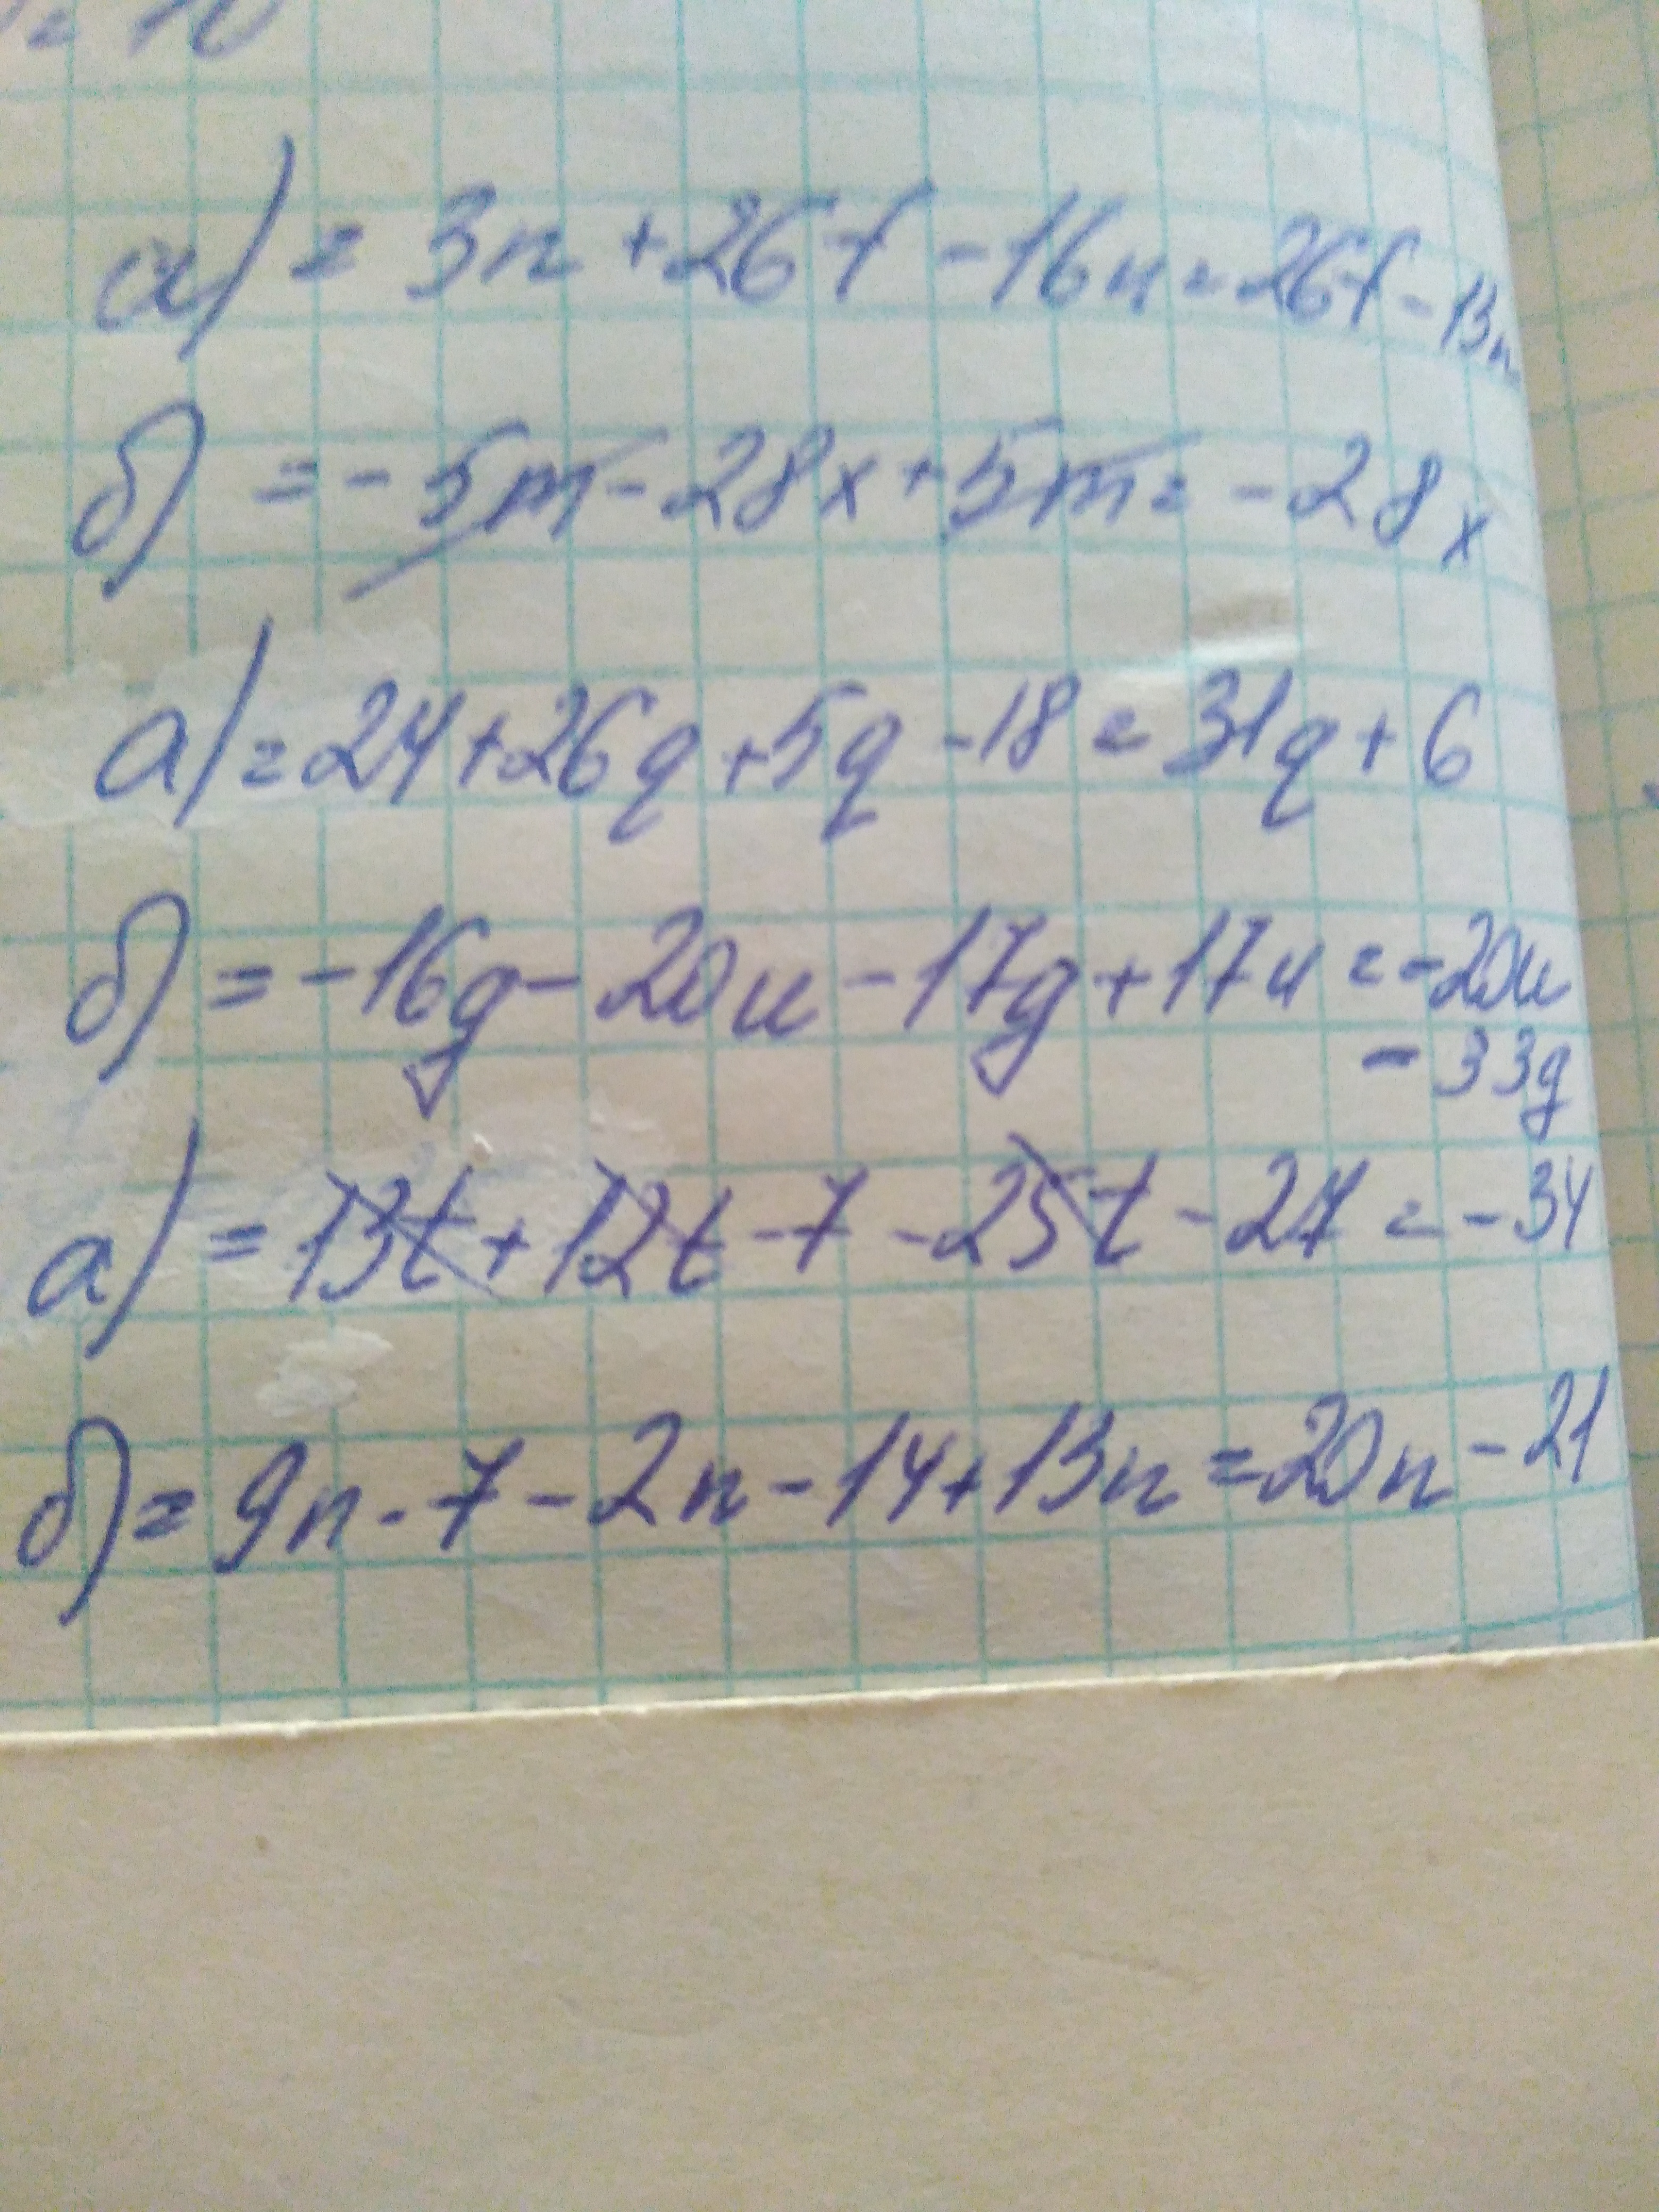 = 10
а) = 3n + 26f - 16n = 26f - 13n
б) = - 5m - 28x + 5m = - 28x
а) = 24 + 26q + 5q - 18 = 31q + 6
б) = - 16g - 20u - 17g + 17u = - 20u
- 33g
а) = 13t + 12t - 7 - 25t - 27 = - 34
б) = 9n - 7 - 2n - 14 + 13n = 20n - 21